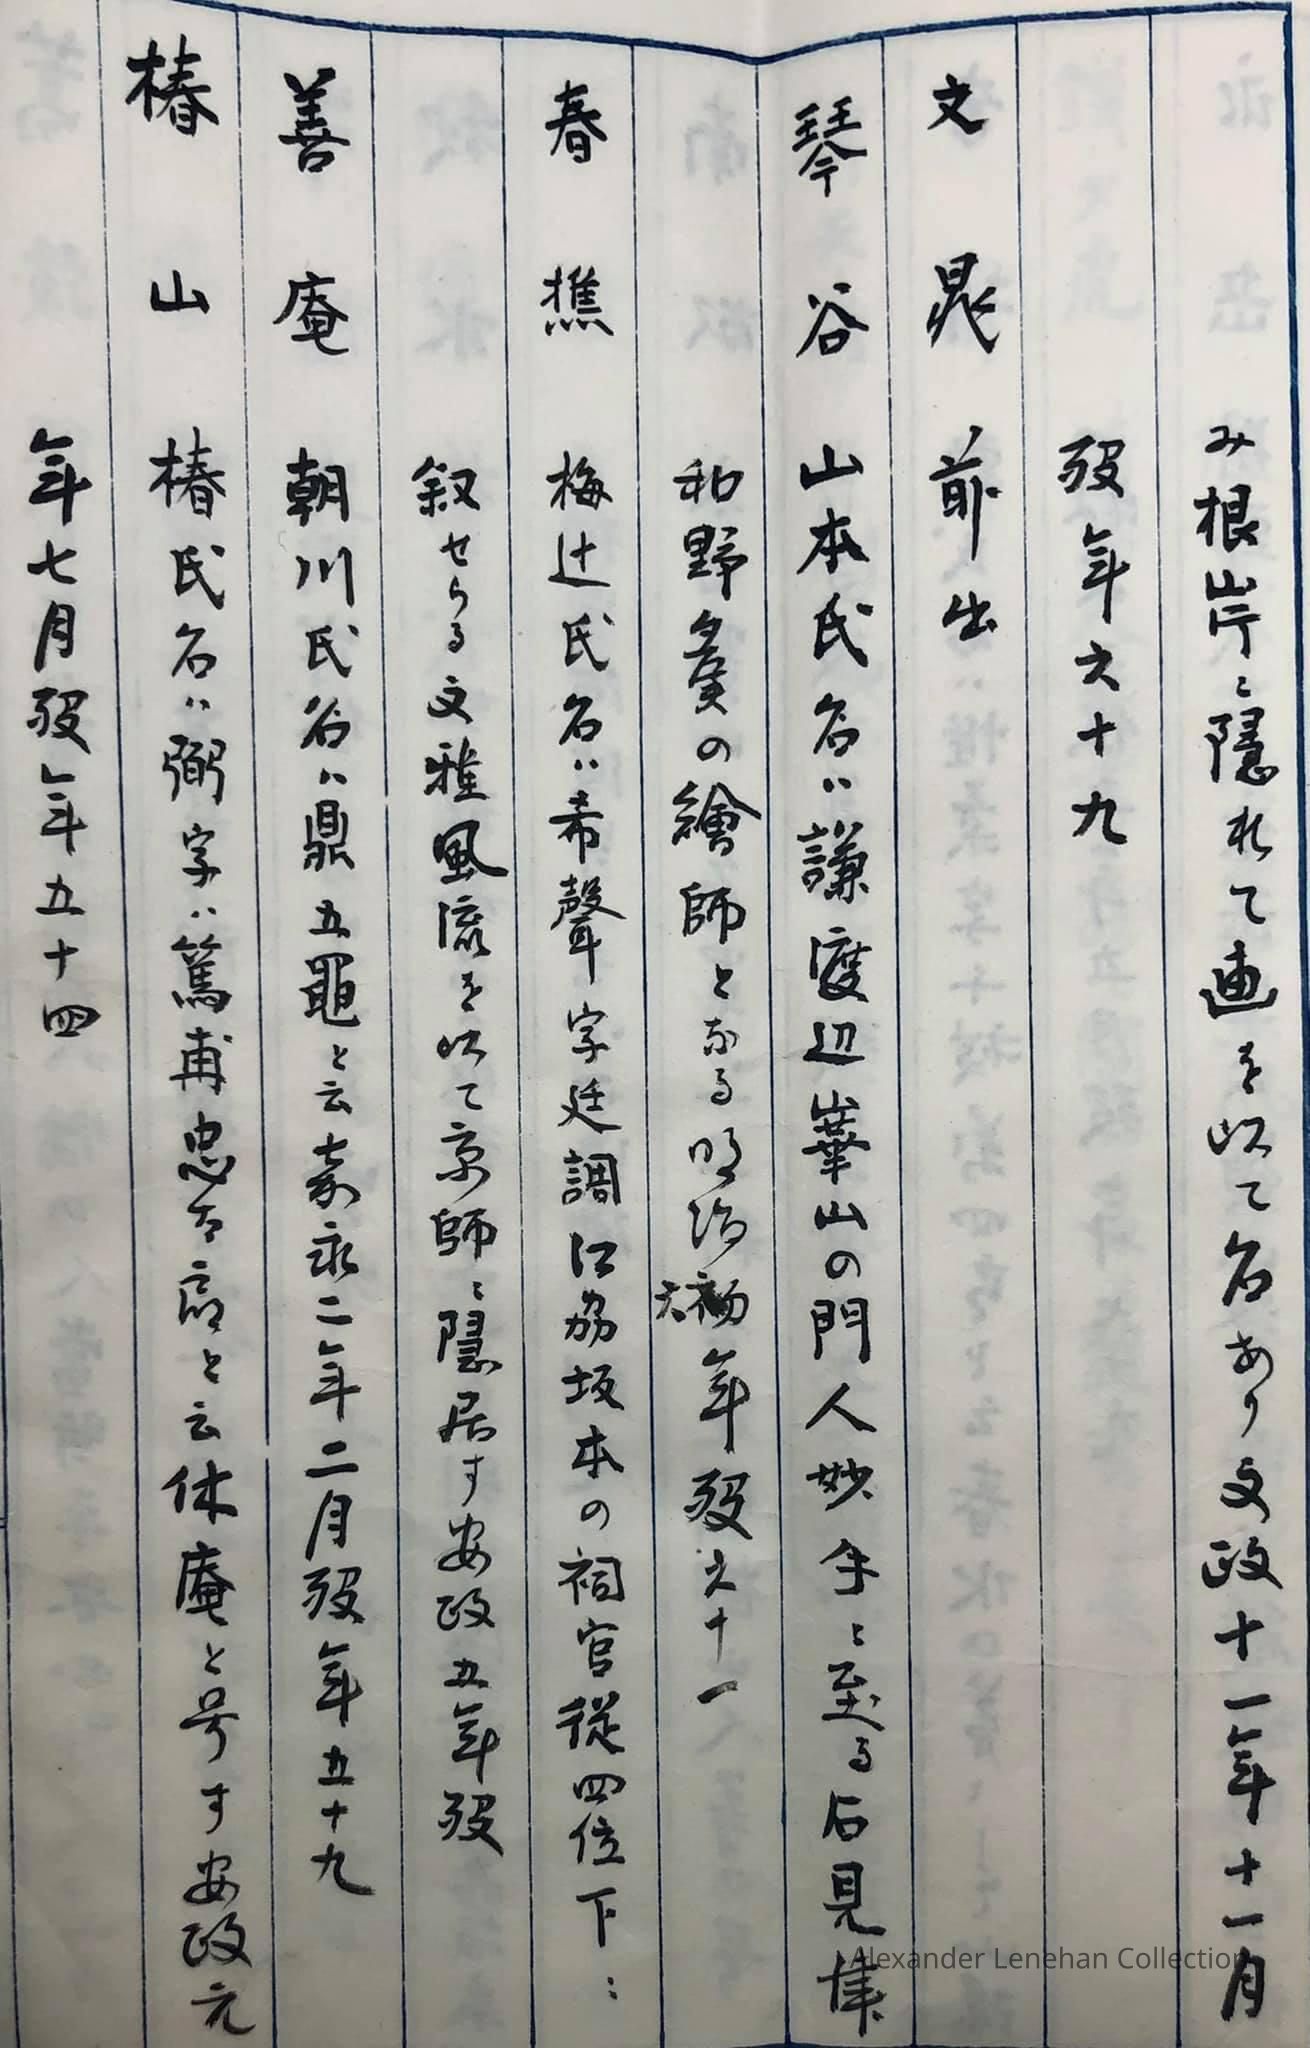 み根岸ニ隠れて画を以て名あり文政十一年十一月
歿年六十九
文晁 前出
琴谷 山本氏名ハ謙渡辺崋山の門人妙手ニ至る石見津
和野矦の繪師となる明治初年歿六十一
春樵 梅辻氏名ハ希聲字廷調江劦坂本の祠官従四位下ニ
叙せらる文雅風流を以て京師ニ隠居す安政五年歿
善庵 朝川氏名ハ鼎五鼎と云嘉永二年二月歿年五十九
椿山 椿氏名ハ弼字ハ篤甫忠太と云休庵と号す安政元
年七月歿年五十四
Alexander Lenehan Collection